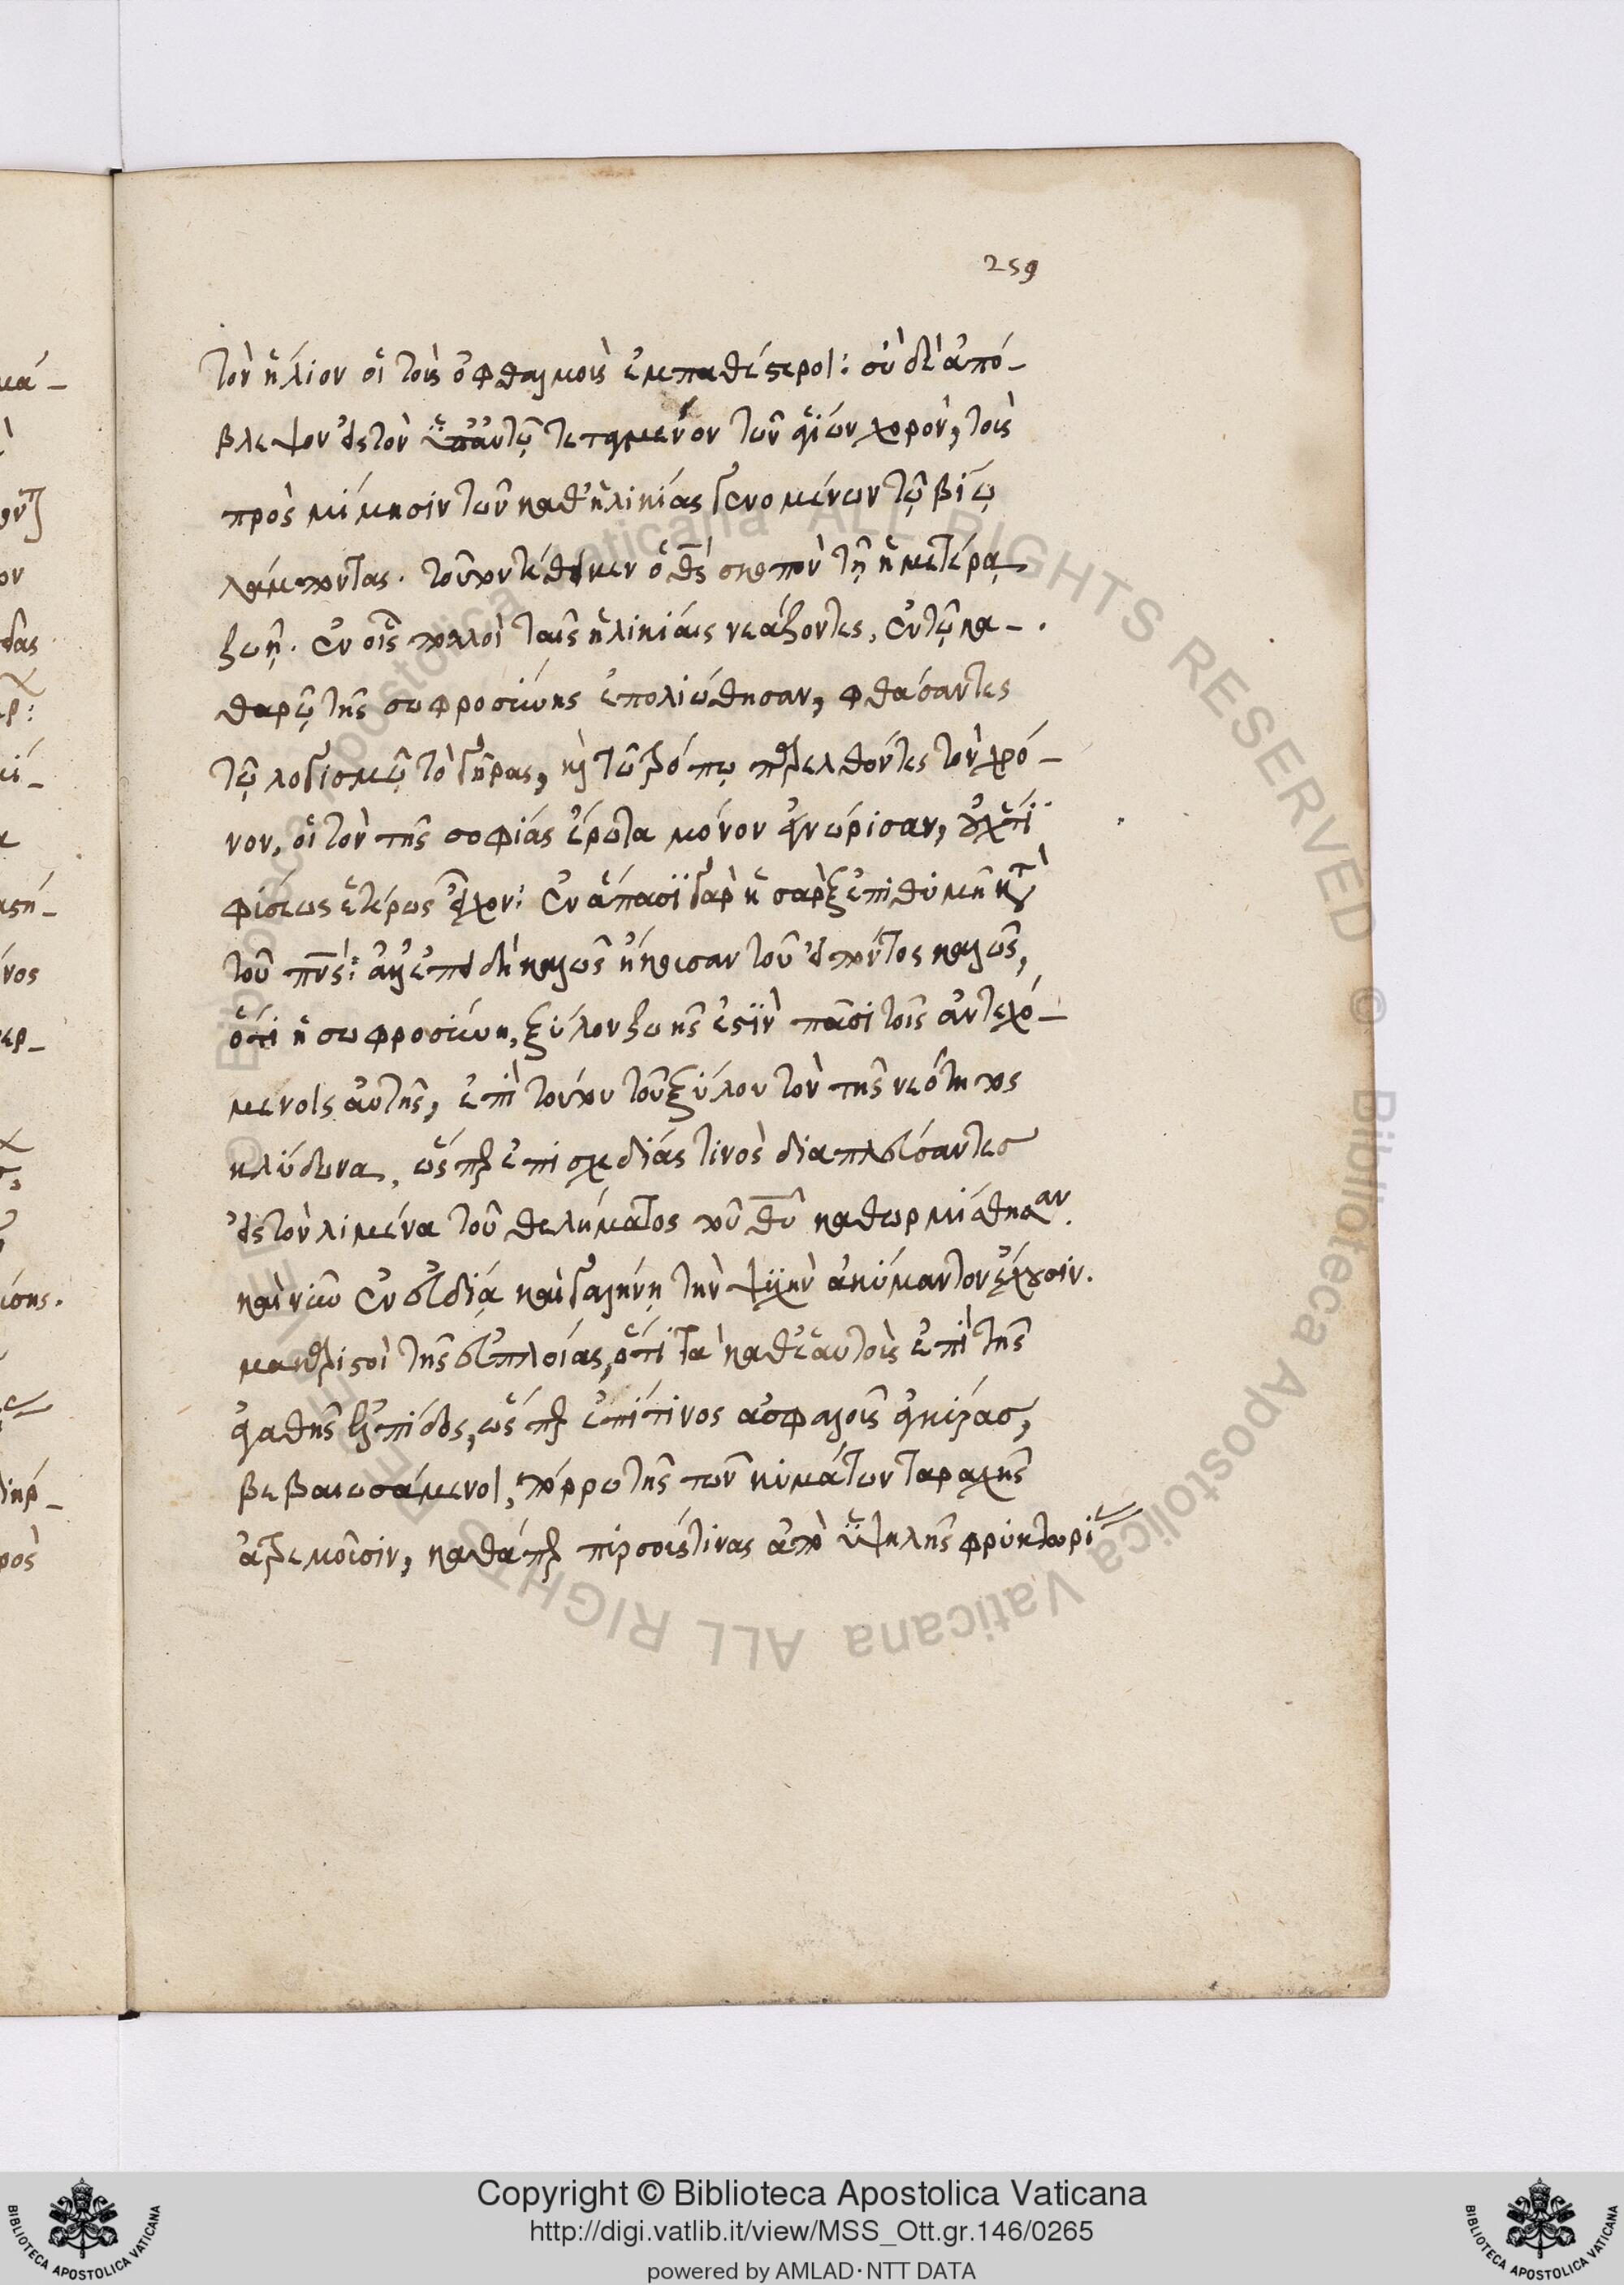 259
τὸν ἥλιον οἱ τοὺς ὀφθαλμοὺς ἐμπαθέστεροι: σὺ δὲ ἀπό-
βλεψον εἰς τὸν ὑπ' αὐτῷ τεταγμένον τῶν ἁγίων χορὸν, τοὺς
πρὸς μίμησιν τῶν καθ' ἡλικίας γενομένων τῷ βίῳ
λάμποντας. τοῦτον τέθεικεν ὁ θς̅ σκοπὸν τῇ ἡμετέρᾳ
ζωῇ. ἐν οἷς πολλοὶ ταῖς ἡλικίαις νεάζοντες, ἐν τῷ κα-
θαρῷ τῆς σωφροσύνης ἐπολιώθησαν, φθάσαντες
τῷ λογισμῷ τὸ γῆρας, κ̀ τῷ τρόπῳ παρελθόντες τὸν χρό-
νον, οἳ τὸν τῆς σοφίας ἔρωτα μόνον ἐγνώρισαν, οὐχ ὅτι
φύσεως ἑτέρως εἶχον: ἐν ἅπασι γὰρ ἡ σὰρξ ἐπιθυμεῖ κατὰ
τοῦ πνς̅: ἀλλ' ἐπειδὴ καλῶς ἤκουσαν τοῦ εἰπόντος καλῶς,
ὅτι ἡ σωφροσύνη, ξύλον ζωῆς ἐστὶν πᾶσι τοῖς ἀντεχο-
μένοις αὐτῆς, ἐπὶ τούτου τοῦ ξύλου τὸν τῆς νεότητος
κλύδωνα, ὥσπερ ἐπὶ σχεδίας τινὸς διαπλεύσαντες
εἰς τὸν λιμένα τοῦ θελήματος τοῦ θυ̅ καθωρμίσθησαν.
καὶ νῦν ἐν εὐδίᾳ καὶ γαλήνῃ τὴν ψυχὴν ἀκύμαντον ἔχουσιν.
μακαριστοὶ τῆς εὐπλοίας, ὅτι τὰ καθ' ἑαυτοὺς ἐπὶ τῆς
ἀγαθῆς ἐλπίδος, ὥσπερ ἐπί τινος ἀσφαλοῦς ἀγκύρας,
βεβαιωσάμενοι, πόρρω τῆς τῶν κυμάτων ταραχῆς
ἀτρεμοῦσιν, καθάπερ πυρσούς τινας ἀπὸ ὑψηλῆς φρυκτωρί
Copyright © Biblioteca Apostolica Vaticana
http://digi.vatlib.it/view/MSS_Ott.gr.146/0265
powered by AMLAD·NTT DATA